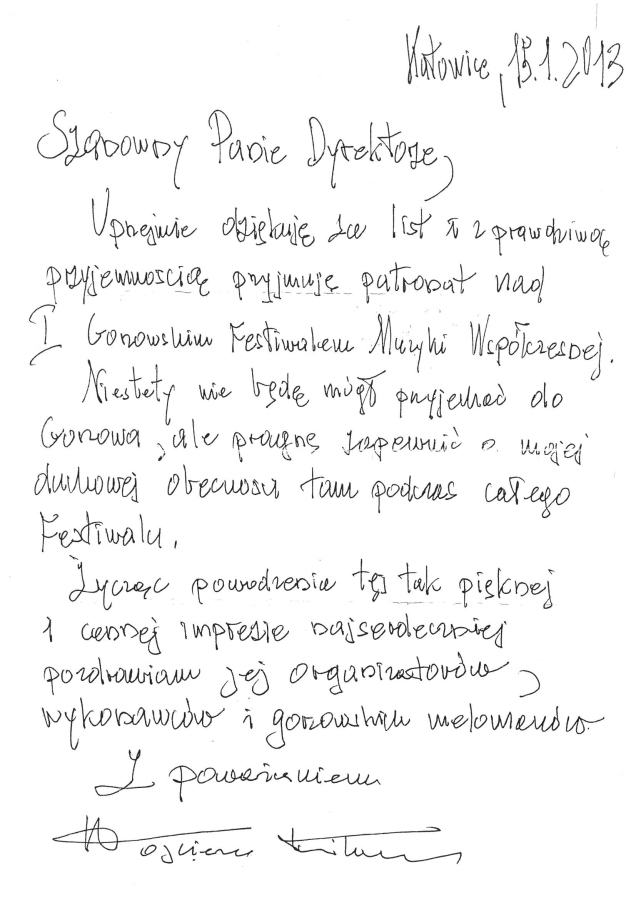 Katowice, 15.1.2013
Szanowny Panie Dyrektorze,
Uprzejmie dziękuję za list i z prawdziwą
przyjemnością przyjmuję patronat nad
I Gorzowskim Festiwalem Muzyki Współczesnej.
Niestety nie będę mógł przyjechać do
Gorzowa, ale pragnę zapewnić o mojej
duchowej obecności tam podczas całego
Festiwalu.
Życząc powodzenia tej tak pięknej
i cennej imprezie najserdeczniej
pozdrawiam jej organizatorów,
wykonawców i gorzowskich melomanów.
Z poważaniem
Wojciech Kilar